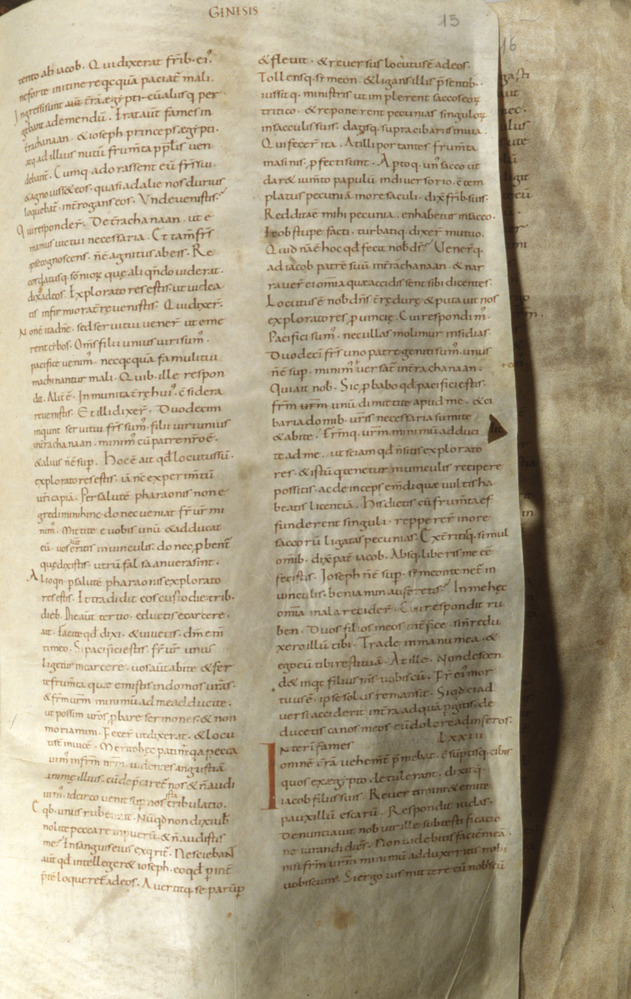 GENESIS
15
16
tento ab iacob. Qui dixerat frīb. ei'.
ne forte in itinere qcquā paciat̄ mali.
Ingressi sunt aūt t̄rā ægypti cū aliis q per
gebant ad emendū. Erat aūt fames in
t̄ra chanaan. & ioseph princeps ægypti.
atq ad illius nutū frum̄ta pp̄lis ven
debant. Cumq. adorassent eū fr̄s sui
& agnouiss& eos. quasi ad alienos durius
loquebat̄. int̄rogans eos. Vnde uenistis.
Qui responder̄. De t̄ra chanaan. ut e
mamus uictui necessaria. Et tam̄ fr̄s
ipse cognoscens. n̄ ē agnitus ab eis. Re
cordatusq. somnior̄ quæ aliqn̄do uiderat.
dix̄ ad eos. Exploratores estis. ut uidea
tis infirmiora t̄ræ uenistis. Qui dixer̄.
Non ē ita dn̄e. sed serui tui uener̄ ut eme
rent cibos. Om̄s filii unius uiri sum'.
pacifice uenim'. nec qcquā famuli tui
machinantur mali. Quib. ille respon
dit. Alit̄ ē. Inmunita t̄ræ hui' c̄siderare
uenistis. Et illi dixer̄. Duodecim
inquiunt serui tui fr̄s sum'. filii uiri unius
in t̄ra chanaan. minim' cū patre nr̄o ē.
& alius n̄ ē sup̄. Hoc ē ait qd locutus sū.
exploratores estis. iā nc̄ experim̄tū
uri capiā. Per salutē pharaonis non e
grediemini hinc. donec ueniat fr̄ ur̄ mi
nim'. Mittite e uobis unū & adducat
eū. uos eritis in uinculis. donec pbent̄
quæ dixistis. utrū falsa an uera sint.
Alioqn p salutē pharaonis explorato
res estis. Tradidit eos custodiæ trib.
dieb. Die aūt tertio. eductis e carcere.
ait. Facite qd dixi. & uiuetis. dm̄ eni
timeo. Si pacifici estis. fr̄ ur̄ unus
ligetur in carcere. uos aūt abite & fer
te frum̄ta quæ emistis in domos ur̄as.
& fr̄m ur̄m minimū ad me adducite.
ut possim ur̄os pbare sermones. & non
moriamini. Fecer̄t ut dixerat. & locu
ti st̄ inuicē. Merito hæc patim̄ qa pecca
uim' in fr̄m nr̄m. uidentes angustiā
animæ illius. cū depcaret̄ nos & n̄ audi
uim'. idcirco uenit sup̄ nos ista tribulatio.
E qb. unus ruben ait. Nūqd non dixi uob.
nolite peccare in puerū. & n̄ audistis
me. En sanguis eius exqrit̄. Nesciebant
aūt qd intellegeret ioseph. eo qd p int̄
p̄tē loqueret̄ ad eos. Auertitq. se parūp
& fleuit. & reuersus locutus ē ad eos.
Tollensq. simeon. & ligans illis p̄sentib.
iussitq. ministris. ut implerent saccos eor̄
tritico. & reponerent pecunias singulor̄
in sacculis suis. datisq. supra cibariis in uia.
Qui fecer̄ ita. At illi portantes frum̄ta
in asinis. pfecti sunt. Aptoq. un' sacco ut
dar& ium̄to papulū in diuersorio. c̄tem
platus pecuniā in ore sacculi. dix̄ fr̄ib. suis.
Reddita ē mihi pecunia. en habetur in sacco.
& obstupefacti. turbatiq. dixer̄ mutuo.
Quid nā ē hoc qd fecit nob d̄s. Uener̄q.
ad iacob patrē suū in t̄rā chanaan. & nar
rauer̄ ei omīa quæ accidissent sibi dicentes.
Locutus ē nob dn̄s t̄ræ dure. & putauit nos
exploratores puinciæ. Cui respondim'.
Pacifici sum'. nec ullas molimur insidias.
Duodeci fr̄s uno patre geniti sum'. unus
n̄ ē sup̄. minim' uersat̄ in t̄ra chanaan.
Qui ait nob. Sic pbabo qd pacifici estis.
fr̄m ur̄m unū dimittite apud me. & ci
baria domib. ur̄is necessaria sumite
& abite. Fr̄mq. ur̄m minimū adduci
te ad me. ut sciam qd n̄ sitis explorato
res. & istū qui tenetur in uinculis recipere
possitis. ac deinceps emdi quæ uultis ha
beatis licentiā. His dictis cū frum̄ta ef
funderent singuli. reppererunt in ore
saccorū ligatas pecunias. Ext̄ritisq. simul
omīb. dix̄ pat̄ iacob. Absq. liberis me ēē
fecistis. Ioseph n̄ ē sup̄. simeon tenet̄ in
uinculis. beniamin auferetis. In me hæc
omīa mala reciderunt. Cui respondit ru
ben. Duos filios meos int̄fice. si n̄ redu
xero illū tibi. Trade in manu mea. &
ego eū tibi restituā. At ille. Non descen
d& inqt filius m̄s uobiscū. Fr̄ ei' mor
tuus ē. ipse solus remansit. Si qd ei ad
uersi acciderit in t̄ra ad quā pgitis. de
ducetis canos meos cū dolore ad inferos.
LXXIII
Interi fames
omnē t̄rā uehem̄t p̄mebat. c̄suptisq. cibis
quos ex ægypto detulerant. dixit q.
iacob filiis suis. Reuertimini & emite
pauxillū escarū. Respondit iudas.
Denuntiauit nob uir ille sub testificatio
ne iurandi dices. Non uidebitis faciē mea.
nisi fr̄m ur̄m minimū adduxeritis
uobiscum. Si ergo uis mittere eū nobiscū